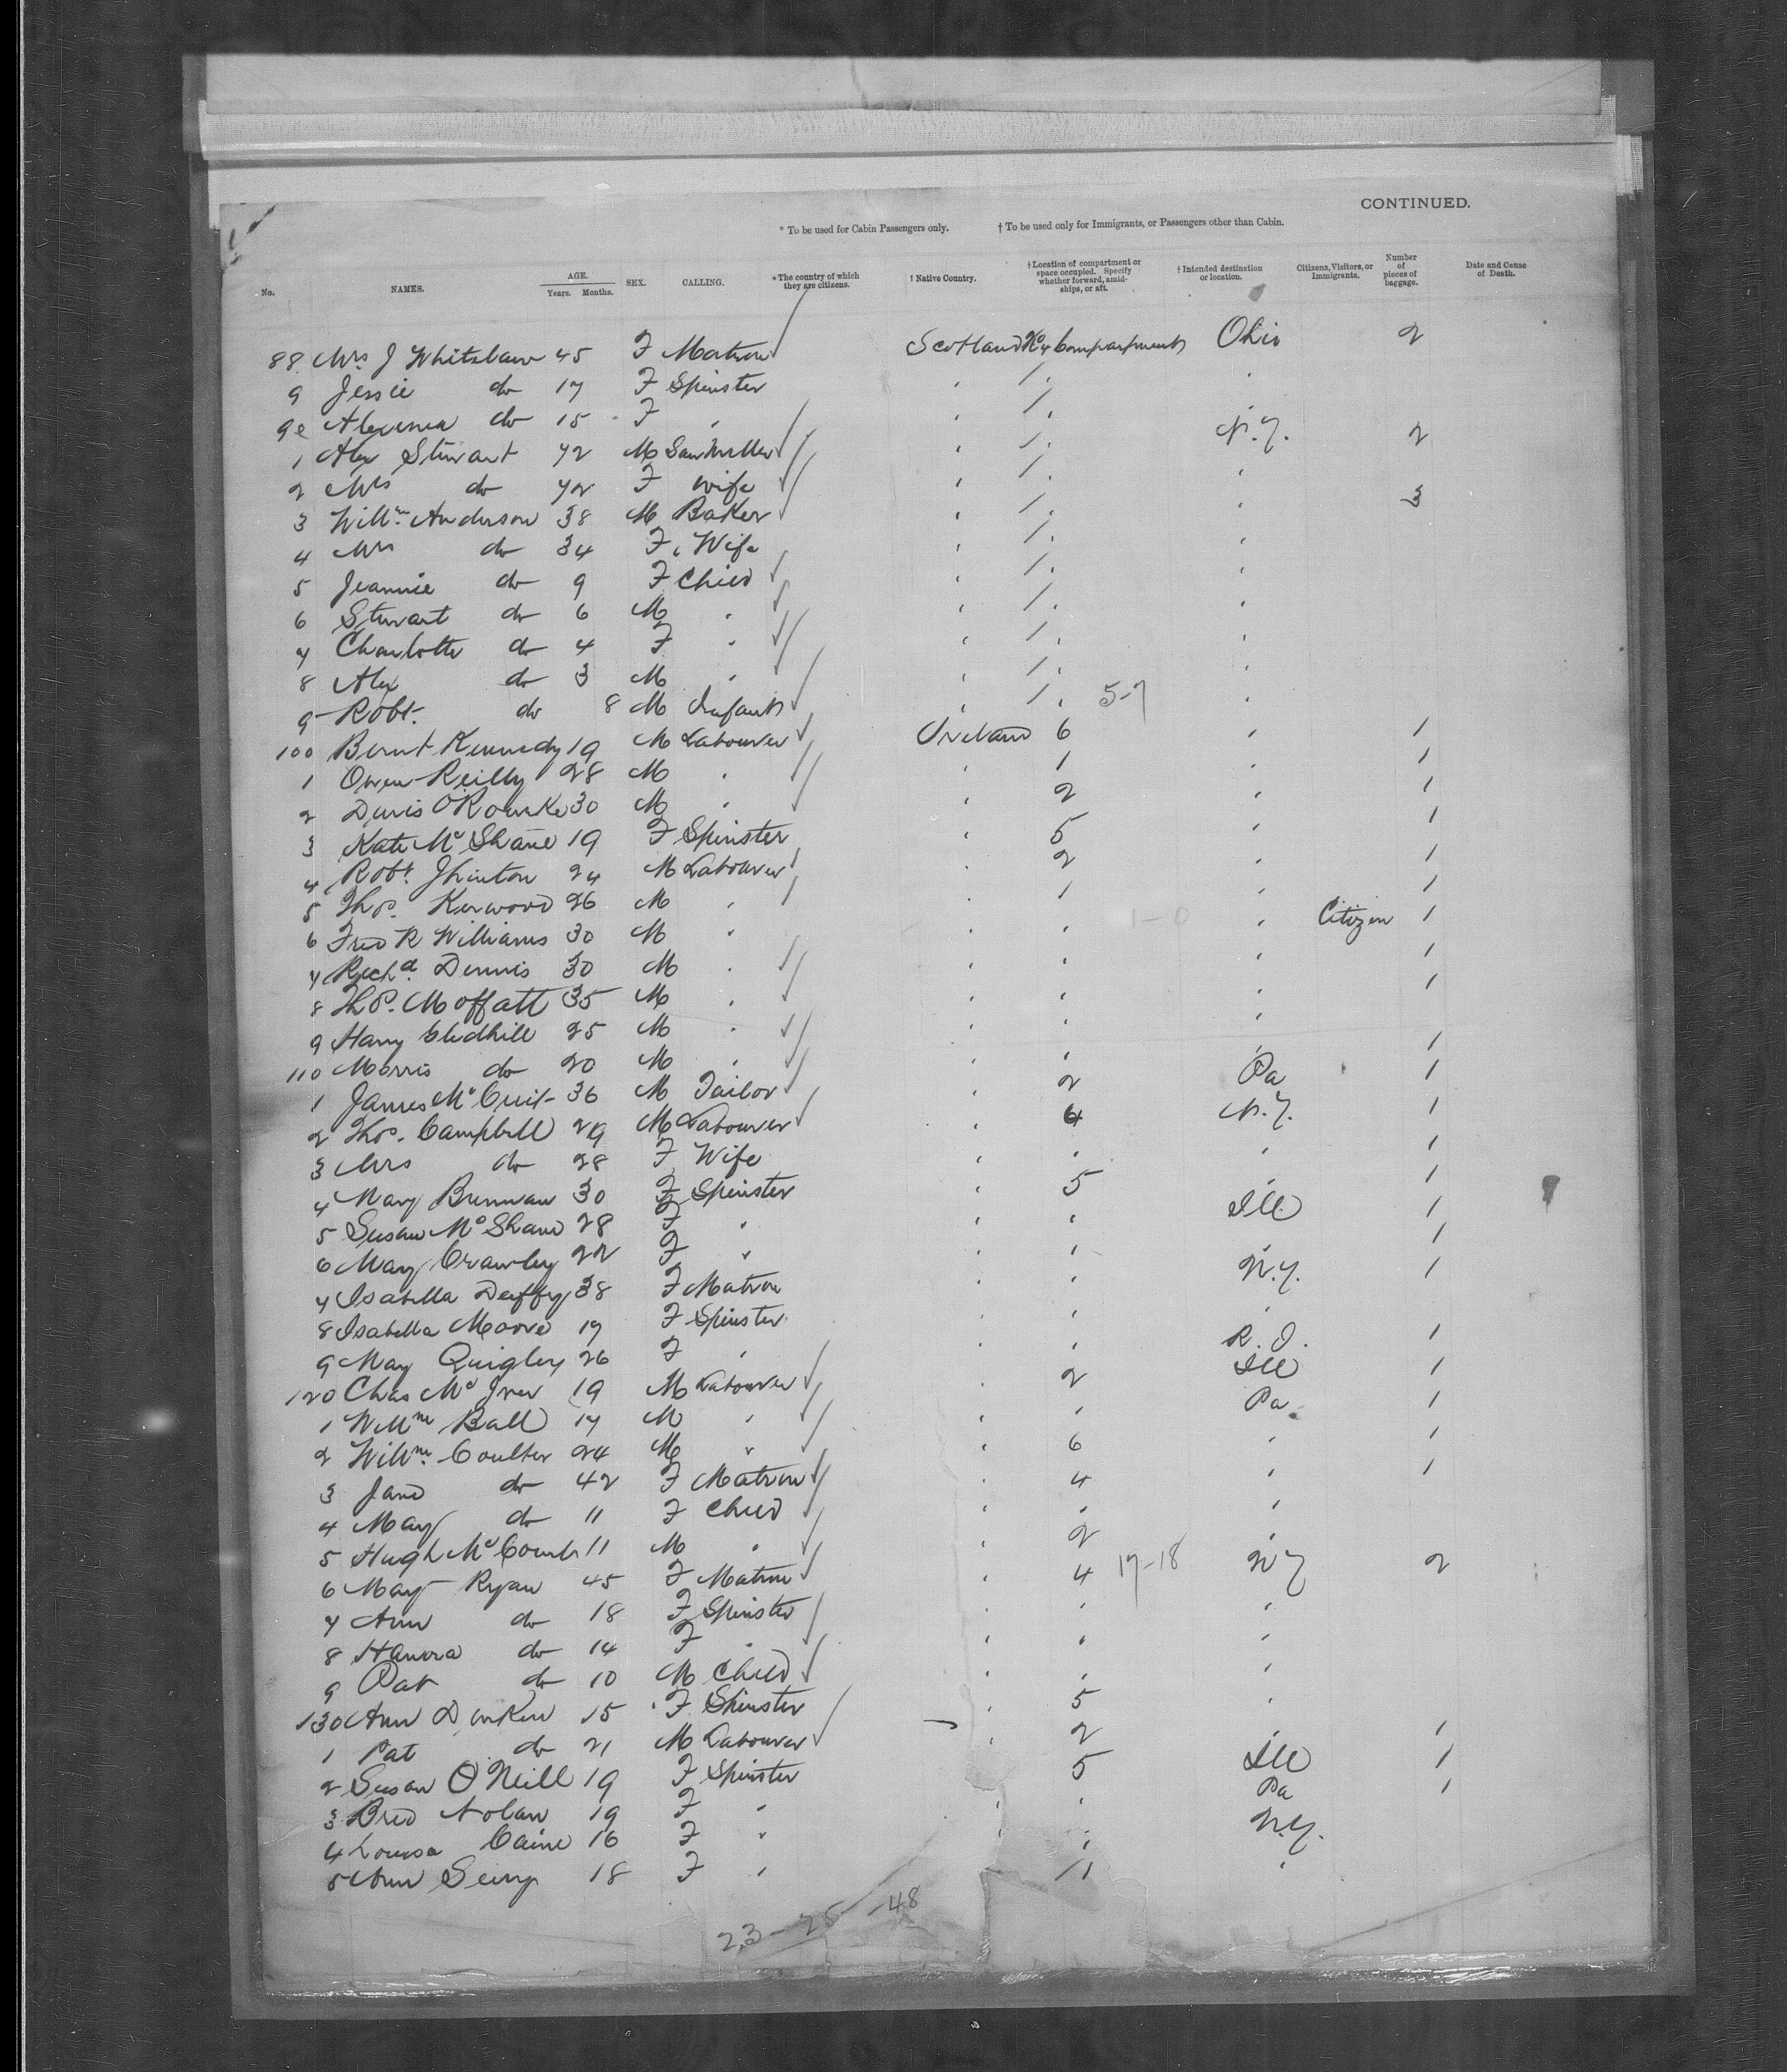 CONTINUED.
* To be used for Cabin Passengers only. † To be used only for Immigrants, or Passengers other than Cabin.
No. NAMES. AGE. Years. Months. SEX. CALLING. *The country of which they are citizens. † Native Country. †Location of compartment or space occupied. Specify whether forward, amidships, or aft. † Intended destination or location. Citizens, Visitors, or Immigrants. Number of pieces of baggage. Date and Cause of Death.
88 Mrs J Whitelaw 45 F Matron Scotland No 4 Compartment Ohio 2
9 Jessie do 17 F Spinster " 1. "
90 do 15 F " " 1. "
1 Alex Stewart 72 M Saw Miller " 1. N.Y. 2
2 Mrs do 72 F Wife " 1. "
3 Willm Anderson 38 M Baker " 1. " 3
4 Mrs do 34 F Wife " 1. "
5 Jeannie do 9 F Child " 1. "
6 Stewart do 6 M " " 1. "
7 Charlotte do 4 F " " 1. "
8 Alex do 3 M " " 1. "
9 Robt. do 8 M Infant " 1. 5-7 "
100 Kennedy 19 M Labourer Ireland 6 " 1
1 Owen Reilly 28 M " " 1 " 1
2 O'Rourke 30 M " " 2 " 1
3 Kate McShane 19 F Spinster " 5 " 1
4 Robt. 24 M Labourer " 2 " 1
5 Thos. Kerwood 26 M " " 1 " 1
6 Fred R Williams 30 M " " " 1-0 " Citizen 1
7 Richd Dennis 30 M " " " " 1
8 Thos. Moffatt 35 M " " " " 1
9 Harry Gledhill 25 M " " " "
110 Morris do 20 M " " " " 1
1 James 36 M Tailor " 2 Pa 1
2 Thos. Campbell 29 M Labourer " 4 N.Y. 1
3 Mrs do 28 F Wife " " " 1
4 Mary Brennan 30 F Spinster " 5 " 1
5 Susan McShane 28 F " " " Ill 1
6 Mary Crawley 22 F " " " " 1
7 Isabella Duffy 38 F Matron " " N.Y. 1
8 Isabella Moore 17 F Spinster " " "
9 Mary Quigley 26 F " " " R.I. 1
120 Chas McIver 19 M Labourer " 2 Ill 1
1 Willm Ball 17 M " " " Pa 1
2 Willm Coulter 24 M " " 6 " 1
3 Jane do 42 F Matron " 4 " 1
4 Mary do 11 F Child " " "
5 Hugh McComb 11 M " " 2 "
6 Mary Ryan 45 F Matron " 4 17-18 N Y 2
7 Ann do 18 F Spinster " " "
8 Hanora do 14 F " " " "
9 Pat do 10 M Child " " "
130 Ann Durkin 15 F Spinster " 5 "
1 Pat do 21 M Labourer " 2 " 1
2 Susan O'Neill 19 F Spinster 5 Ill 1
3 Brid Nolan 19 F " " " Pa 1
4 Louisa Caine 16 F " " " N.Y.
5 Ann 18 F " 11 "
23-25-48